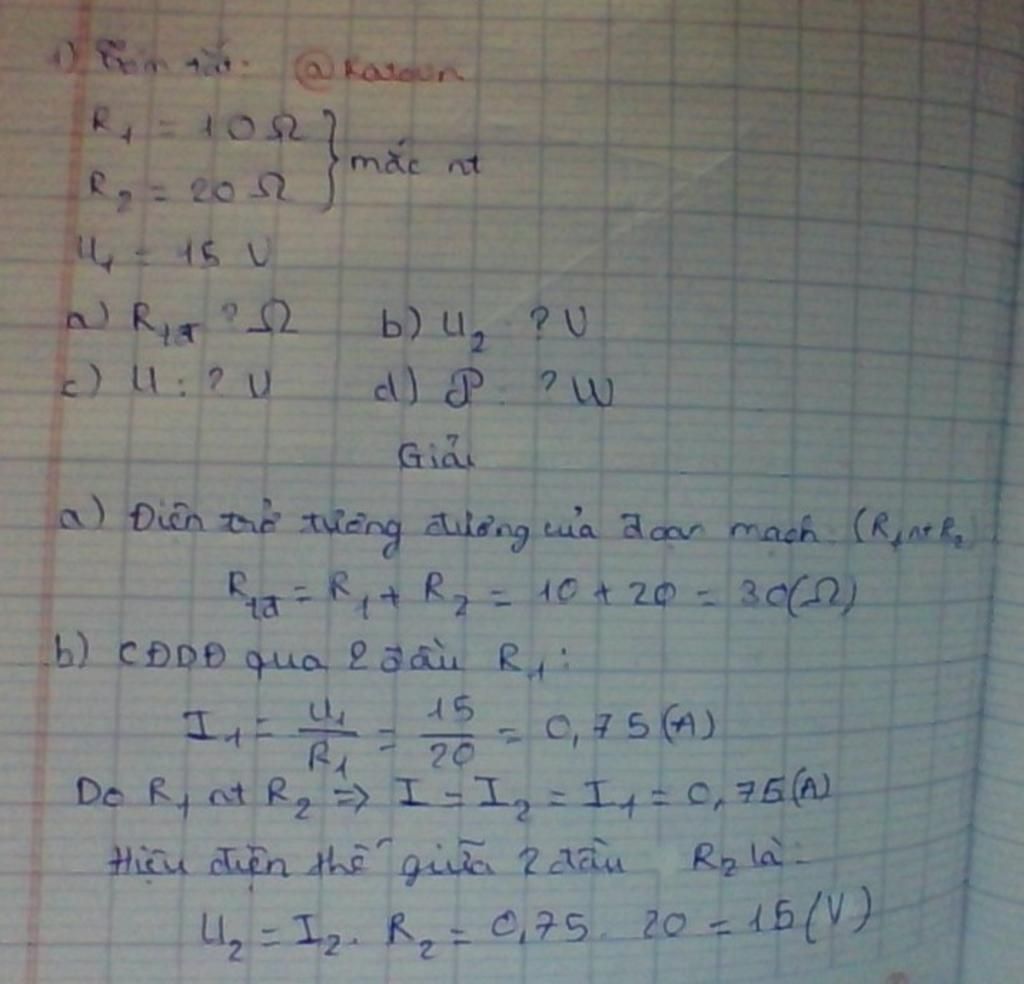 1) Tóm tắt: @Kasoun
R₁ = 10 Ω
R₂ = 20 Ω } mắc nt
U₁ = 15 V
a) R_tđ ? Ω b) U₂ ? V
c) U : ? V d) 𝒫 : ? W
Giải
a) Điện trở tương đương của đoạn mạch (R₁ nt R₂
R_tđ = R₁ + R₂ = 10 + 20 = 30(Ω)
b) CĐDĐ qua 2 đầu R₁ :
I₁ = U₁/R₁ = 15/20 = 0,75 (A)
Do R₁ nt R₂ => I = I₂ = I₁ = 0,75(A)
Hiệu điện thế giữa 2 đầu R₂ là:
U₂ = I₂. R₂ = 0,75. 20 = 15 (V)